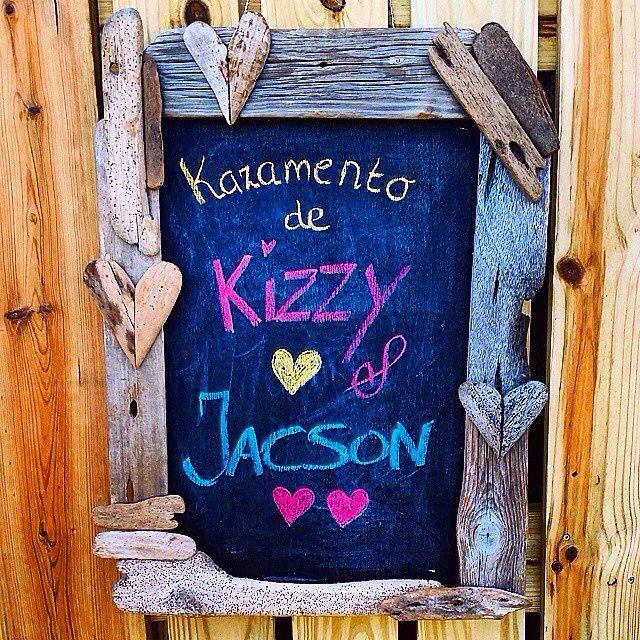 Kazamento
de
Kizzy
&
JACSON